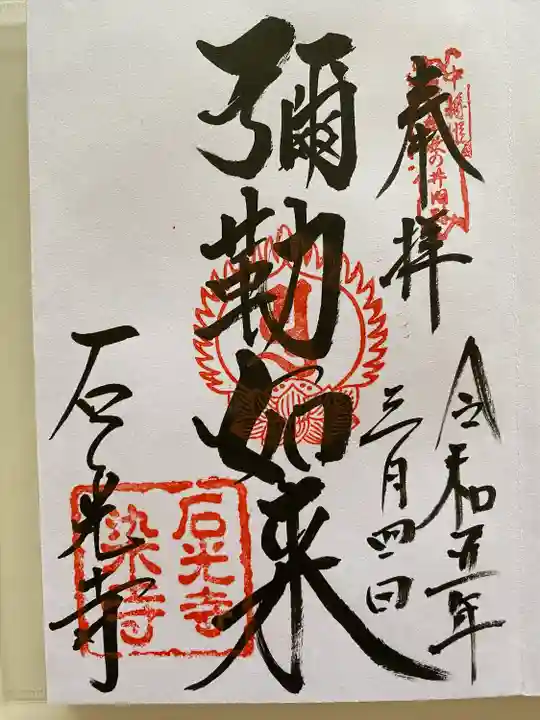 奉拝
令和五年
三月四日
彌勒如来
石光寺
石光寺
染寺